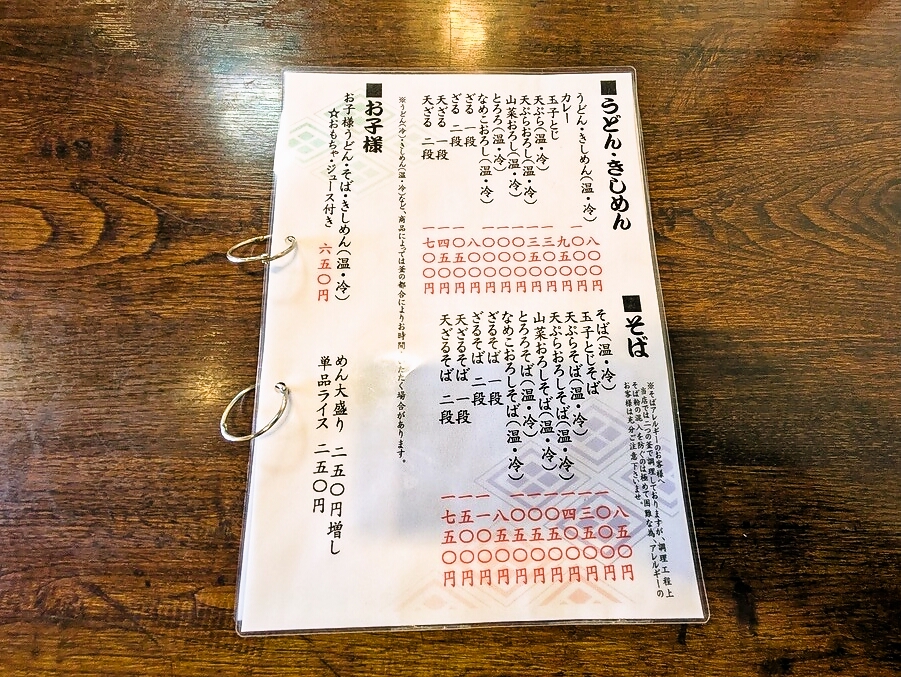 ■うどん・きしめん
うどん・きしめん(温・冷) 八〇〇円
カレー 一〇〇〇円
玉子とじ 九五〇円
天ぷら(温・冷) 一三〇〇円
天ぷらおろし(温・冷) 一三五〇円
山菜おろし(温・冷) 一〇〇〇円
とろろ(温・冷) 一〇〇〇円
なめこおろし(温・冷) 一〇〇〇円
ざる 一段 八〇〇円
ざる 二段 一〇五〇円
天ざる 一段 一四五〇円
天ざる 二段 一七〇〇円
■そば
※そばアレルギーのお客様へ
当店では二つの釜で調理しておりますが、調理工程上
そば粉の混入を防ぐのは極めて困難な為、アレルギーの
お客様は充分ご注意下さいませ。
そば(温・冷) 八五〇円
玉子とじそば 一〇〇〇円
天ぷらそば(温・冷) 一三五〇円
天ぷらおろしそば(温・冷) 一四〇〇円
山菜おろしそば(温・冷) 一〇五〇円
とろろそば(温・冷) 一〇五〇円
なめこおろしそば(温・冷) 一〇五〇円
ざるそば 一段 八五〇円
ざるそば 二段 一一〇〇円
天ざるそば 一段 一五〇〇円
天ざるそば 二段 一七五〇円
※うどん(冷)・きしめん(温・冷)など、商品によっては釜の都合によりお時間いただく場合があります。
■お子様
お子様うどん・そば・きしめん(温・冷)
☆おもちゃ・ジュース付き 六五〇円
めん大盛り 二五〇円増し
単品ライス 二五〇円